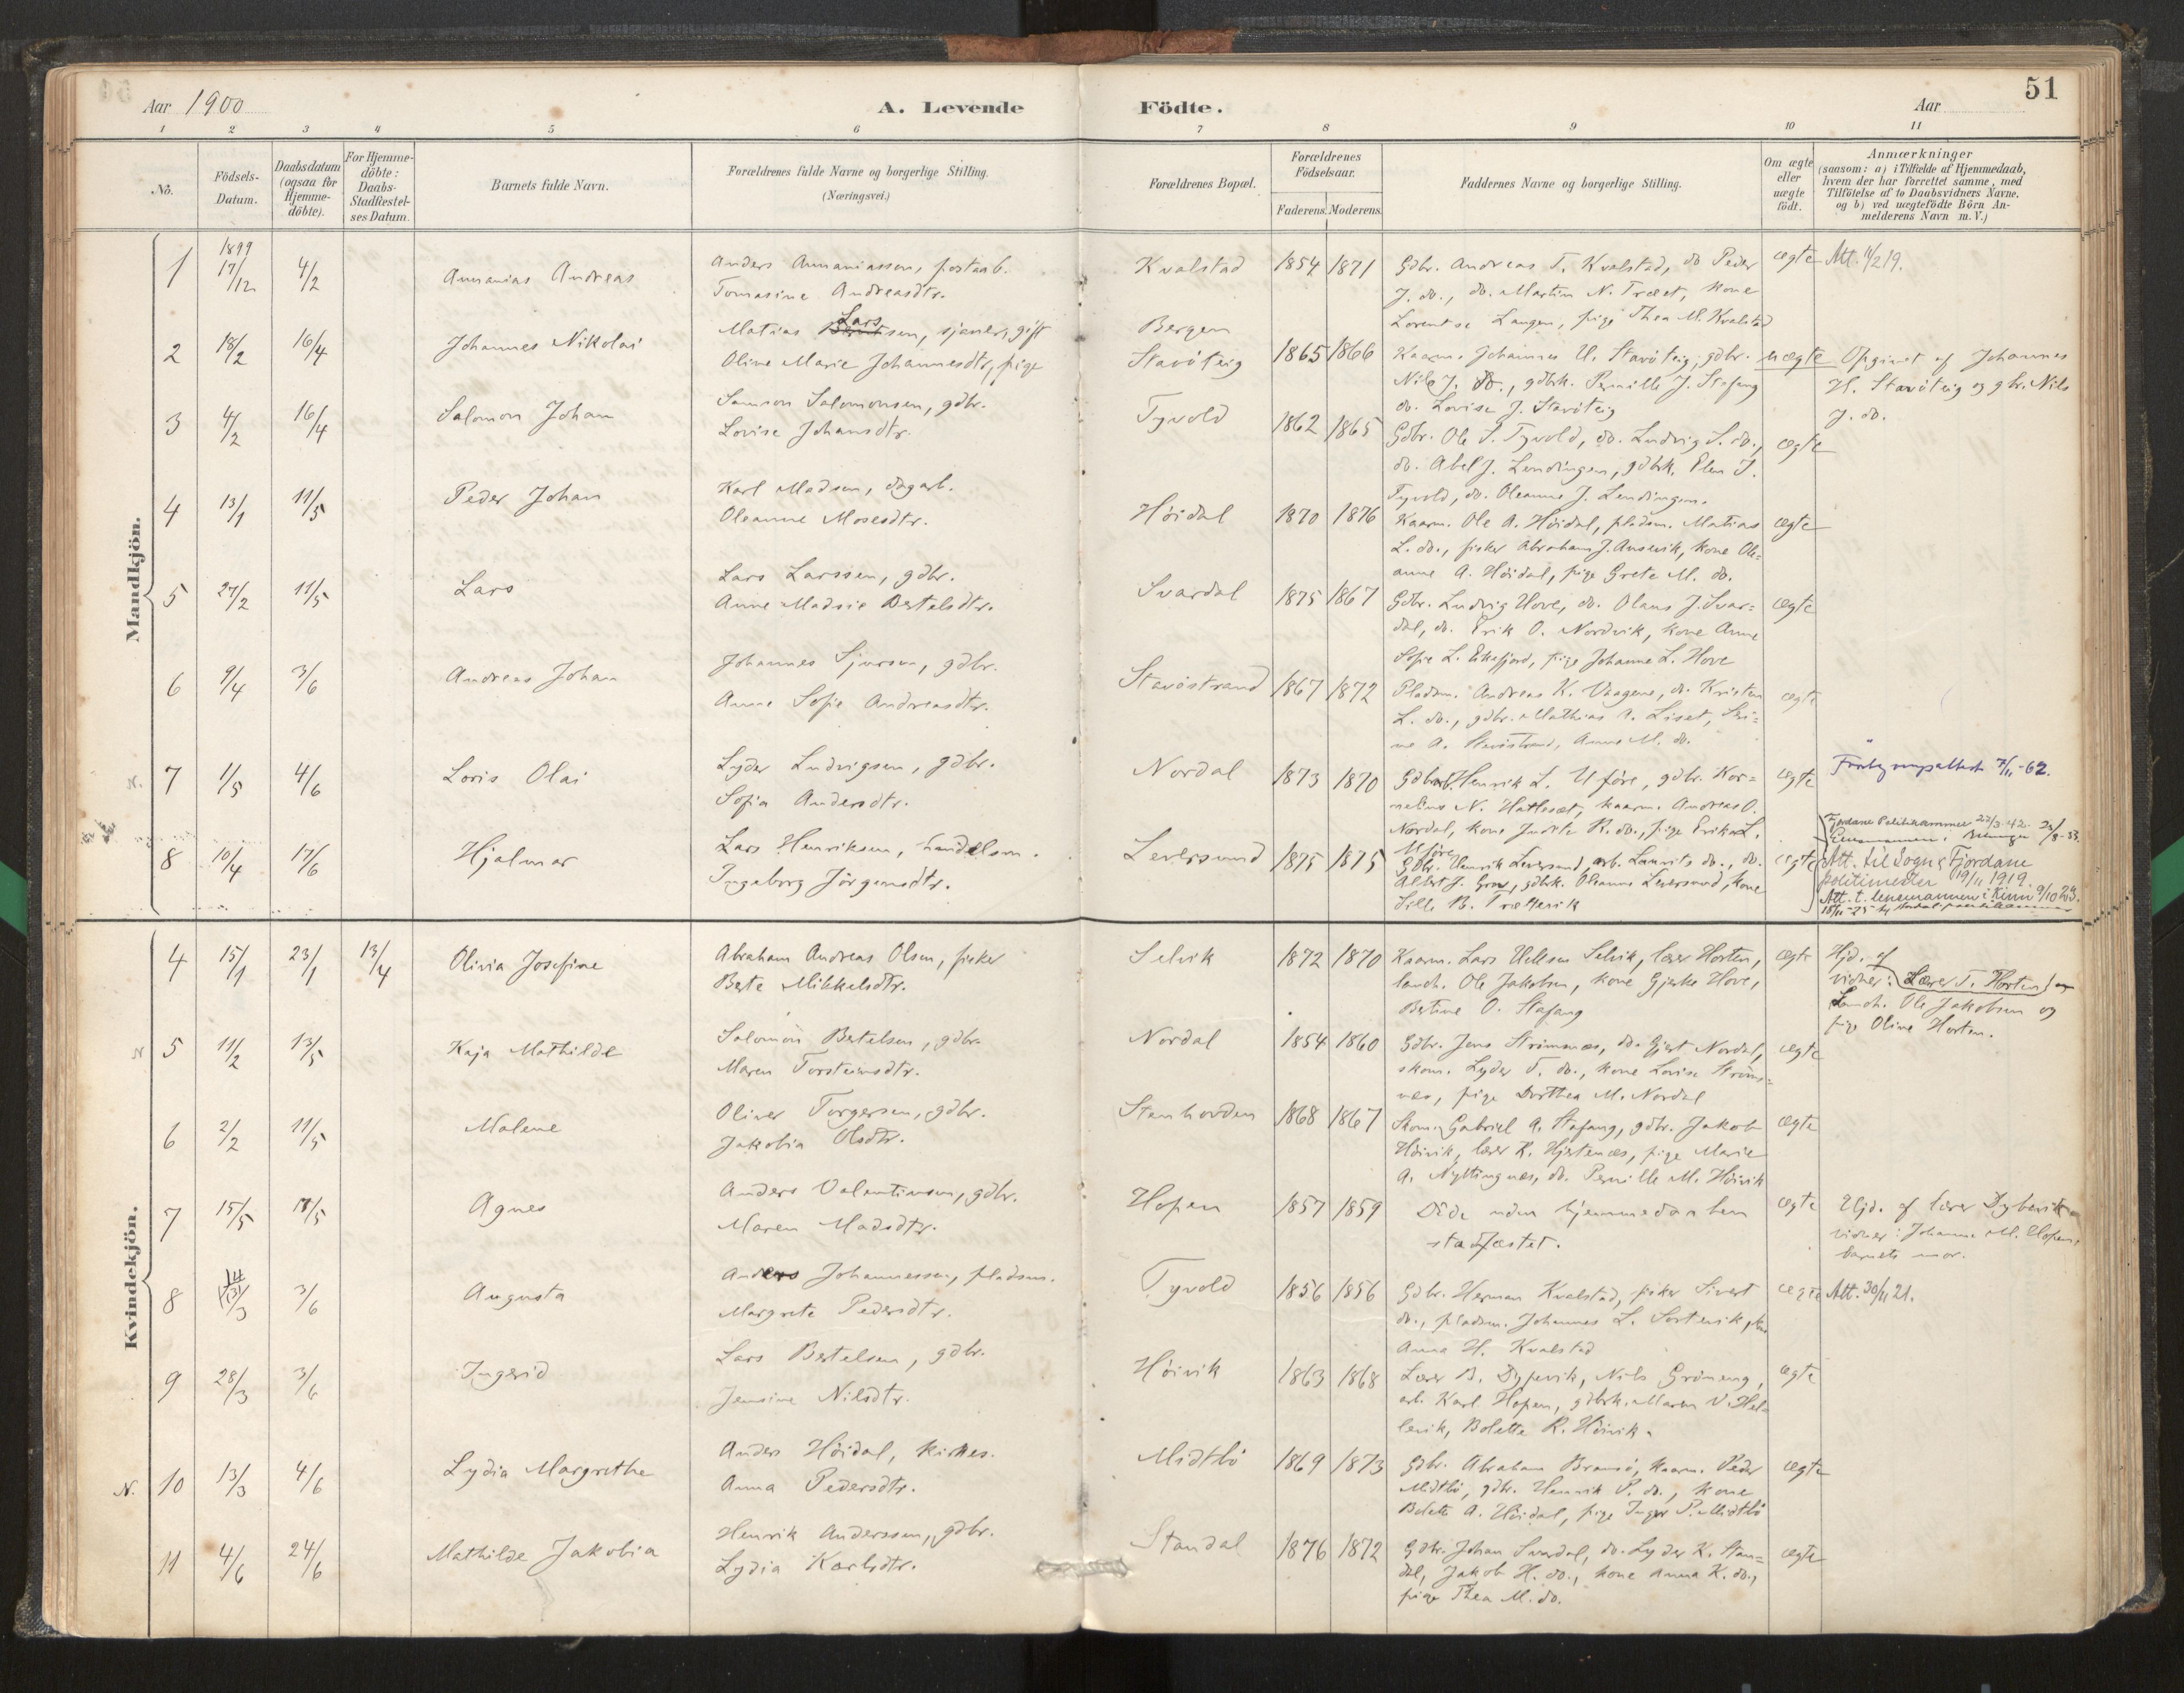 Aar 1900
A. Levende
Födte.
Aar
51
1 2 3 4 5 6 7 8 9 10 11
No.
Födsels-Datum.
Daabsdatum (ogsaa for Hjemme-döbte).
For Hjemme-döbte: Daabs-Stadfæstel-ses Datum.
Barnets fulde Navn.
Forældrenes fulde Navne og borgerlige Stilling.
(Næringsvei.)
Forældrenes Bopæl.
Forældrenes Födselsaar.
Faderens. Moderens.
Faddernes Navne og borgerlige Stilling.
Om ægte eller uægte födt.
Anmærkninger
(saasom: a) i Tilfælde af Hjemmedaab,
hvem der har forrettet samme, med
Tilföielse af to Daabsvidners Navne.
og b) ved uægtefödte Börn An-
melderens Navn m. V.)
Mandkjön.
1 1899 17/12 4/2 Annanias Andreas
Anders Annaniassen, postaab.
Tomasine Andreasdtr.
Kvalstad 1854 1871
Gdbr. Andreas T. Kvalstad, do Peder
J. do., do. Martin N. Træet, kone
Lorentse Langen, pige Thea M. Kvalstad
ægte Att. 11/2 19.
2 18/2 16/4 Johannes Nikolai
Matias Lars sen, sjøener, gift
Oline Marie Johannesdtr, pige
Bergen
Stavöteig 1865 1866
Kaarm. Johannes H. Stavöteig, gdbr.
Nils J. do., gdbrk. Pernille J. Stafang
do. Lovise J. Stavöteig
uægte Opgivet af Johannes
H. Stavöteig og gbr. Nils
J. do.
3 4/2 16/4 Salomon Johan
Samson Salomonsen, gdbr.
Lovise Johansdtr.
Tyvold 1862 1865
Gdbr. Ole S. Tyvold, do. Ludvig S. do.,
do. Abel J. Lendingen, gdbrk. Elen J.
Tyvold, do. Oleanne J. Lendingen.
ægte
4 13/1 11/5 Peder Johan
Karl Madsen, dagarb.
Oleanne Mosesdtr.
Höidal 1870 1876
Kaarm. Ole A. Höidal, pladsm. Matias
L. do., fisker Abraham J. Ausevik, kone Ole-
anne A. Höidal, pige Grete M. do.
ægte
5 27/2 11/5 Lars
Lars Larssen, gdbr.
Anne Madsie Bertelsdtr.
Svardal 1875 1867
Gdbr. Ludvig Hove, do. Olaus J. Svar-
dal, do. Erik O. Nordvik, kone Anne
Sofie L. Eikefjord, pige Johanne L. Hove
ægte
6 9/4 3/6 Andreas Johan
Johannes Sjursen, gdbr.
Anne Sofie Andreasdtr.
Stavöstrand 1867 1872
Pladsm. Andreas K. Vaagene, do. Kristen
L. do., gdbr. Mathias A. Liset, Stri-
ne A. Stavöstrand, Anne M. do.
ægte
N. 7 1/5 4/6 Loris Olai
Lyder Ludvigsen, gdbr.
Sofia Andersdtr.
Nordal 1873 1870
Gdbrarb. Henrik L. Uföre, gdbr. Kor-
nelius N. Hatleset, kaarm. Andreas O.
Nordal, kone Judite R. do., pige Erika L.
Uföre
ægte 7/11-62.
8 10/4 17/6 Hjalmar
Lars Henriksen, handelsm.
Ingeborg Jörgensdtr.
Leversund 1875 1875
Gdbr. Henrik Leversund, arb. Laurits do., do.
Albert J. Grov, gdbk. Oleanne Leversund, kone
Sille B. Trættevik
ægte
Fjordane Politikammer 27/3-42.
Att. til Sogn & Fjordane
politimester 19/11 1919.
Att. t. lensmannen i Kinn 9/10 23.
Kvindekjön.
4 15/1 23/1 13/4 Olivia Josefine
Abraham Andreas Olsen, fisker
Berte Mikkelsdtr.
Selvik 1872 1870
Kaarm. Lars Selvik, lærer Horten,
landh. Ole Jakobsen, kone Gjerke Hove,
Bertine O. Stafang
ægte Hjd. af
vidner: Lærer T. Horten
Landh. Ole Jakobsen og
pige Oline Horten.
N 5 11/2 13/5 Kaja Mathilde
Salomon Bertelsen, gdbr.
Maren Torsteinsdtr.
Nordal 1854 1860
Gdbr. Jens Strömmes, do. Gjert Nordal,
skom. Lyder T. do., kone Lovise Ström-
nes, pige Dorthea M. Nordal
ægte
6 2/2 11/5 Malene
Oliver Torgersen, gdbr.
Jakobia Olsdtr.
Stenhovden 1868 1867
Skom. Gabriel A. Stafang, gdbr. Jakob
Höivik, lærer K. Hjertenæs, pige Marie
A. Nyttingnes, do. Pernille M. Höivik
ægte
7 15/5 18/5 Agnes
Anders Valentinsen, gdbr.
Maren Madsdtr.
Hopen 1857 1859
Döde uden hjemmedaaben
stadfæstet.
ægte Hjd. af lærer Dybevik
vidner: Johanne M. Hopen,
barnets mor.
8 14/3 3/6 Augusta
Anders Johannessen, pladsm.
Margrete Pedersdtr.
Tyvold 1856 1856
Gdbr. Herman Kvalstad, fisker Sivert
do., pladsm. Johannes L. Sortevik,
Anna H. Kvalstad
ægte Att. 30/11 21.
9 28/3 3/6 Ingerid
Lars Bertelsen, gdbr.
Jensine Nilsdtr.
Höivik 1863 1868
Lærer B. Dypevik, Nils Gröneng,
arb. Karl Hopen, gdbrk. Maren V. Hel-
levik, Bolette R. Höivik.
ægte
N. 10 13/3 4/6 Lydia Margrethe
Anders Höidal, kirkes.
Anna Pedersdtr.
Midtbö 1869 1873
Gdbr. Abraham Bransö, kaarm. Peder
Midtbö, gdbr. Henrik P. do., kone
Bolette A. Höidal, pige Inger P. Midtbö
ægte
11 4/6 24/6 Mathilde Jakobia
Henrik Anderssen, gdbr.
Lydia Karlsdtr.
Standal 1876 1872
Gdbr. Johan Svardal, do. Lyder K. Stan-
dal, Jakob H. do., kone Anna K. do.,
pige Thea M. do.
ægte